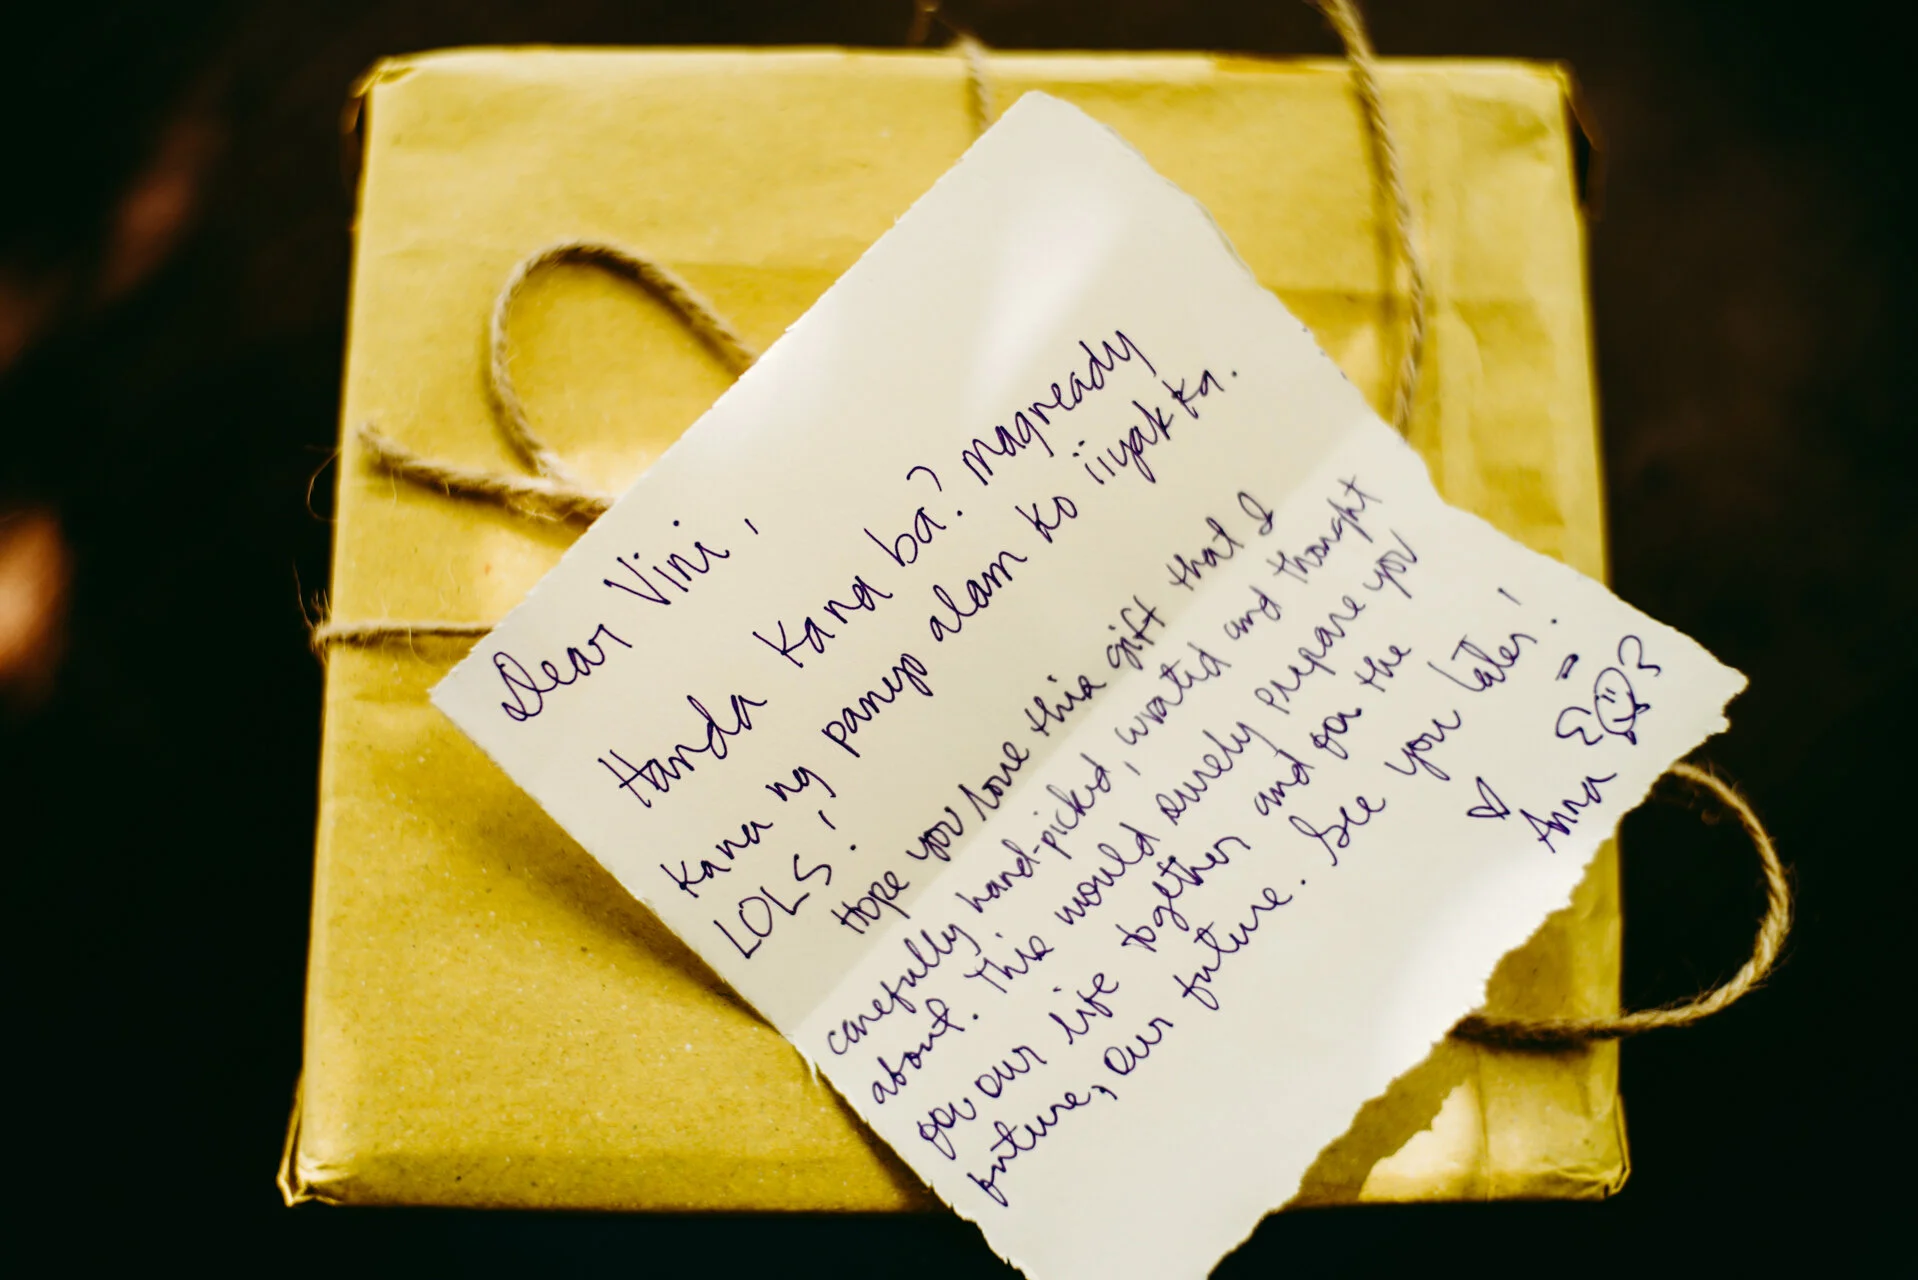 Dear Vini,
Handa Kana ba? magready
Kana ng panyo alam ko iiyak ka.
LOLS!
Hope you love this gift that I
carefully hand-picked, and thought
about. This would surely prepare you
for our life together and for the
future, our future. See you later!
Anna